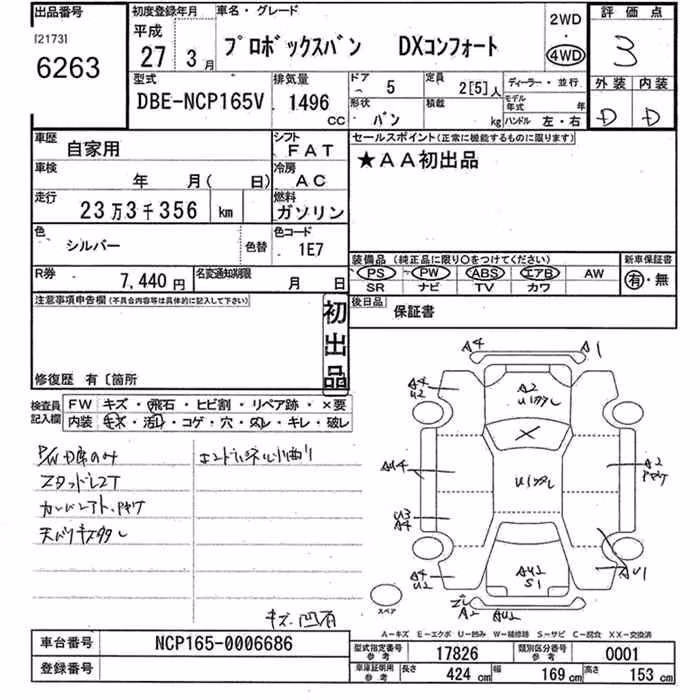 出品番号
[2173]
6263
初度登録年月
平成
27年 3月
車名・グレード
プロボックスバン DXコンフォート
2WD
・
4WD
評価点
3
外装 内装
D D
型式
DBE-NCP165V
排気量
1496 CC
ドア 5
形状 バン
定員 2[5]人
積載 kg
ディーラー・並行
モデル年式 年
ハンドル 左・右
車歴 自家用
シフト FAT
車検 年 月( 日)
冷房 AC
走行 23万3千356 km
燃料 ガソリン
色 シルバー
色替
色コード 1E7
R券 7,440円
名変通知期限 月 日
セールスポイント(正常に機能するものに限ります)
★AA初出品
装備品(純正品に限り○をつけてください)
PS PW ABS エアB AW
SR ナビ TV カワ
新車保証書
有・無
後日品 保証書
注意事項申告欄(不具合内容等は具体的に記入して下さい)
初出品
修復歴 有〔箇所
検査員記入欄
FW キズ・飛石・ヒビ割・リペア跡・×要
内装 キズ・汚レ・コゲ・穴・ヌレ・キレ・破レ
キズ、凹有
A4
A1
A4
U2
A2
A4
U3
A4
A2
A4
U2
AU2
S1
AU1
A2
AU2
スペア
A-キズ E-エクボ U-凹み W-補修跡 S-サビ C-腐食 XX-交換済
車台番号 NCP165-0006686
登録番号
型式指定番号 参考 17826
類別区分番号 参考 0001
車庫証明用 参考 長さ 424 cm 幅 169 cm 高さ 153 cm